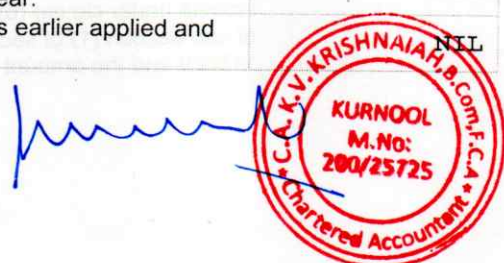 ear.
s earlier applied and
NIL
C.A. K.V. KRISHNAIAH, B.Com, F.C.A
KURNOOL
M.No:
200/25725
★ Chartered Accountant ★